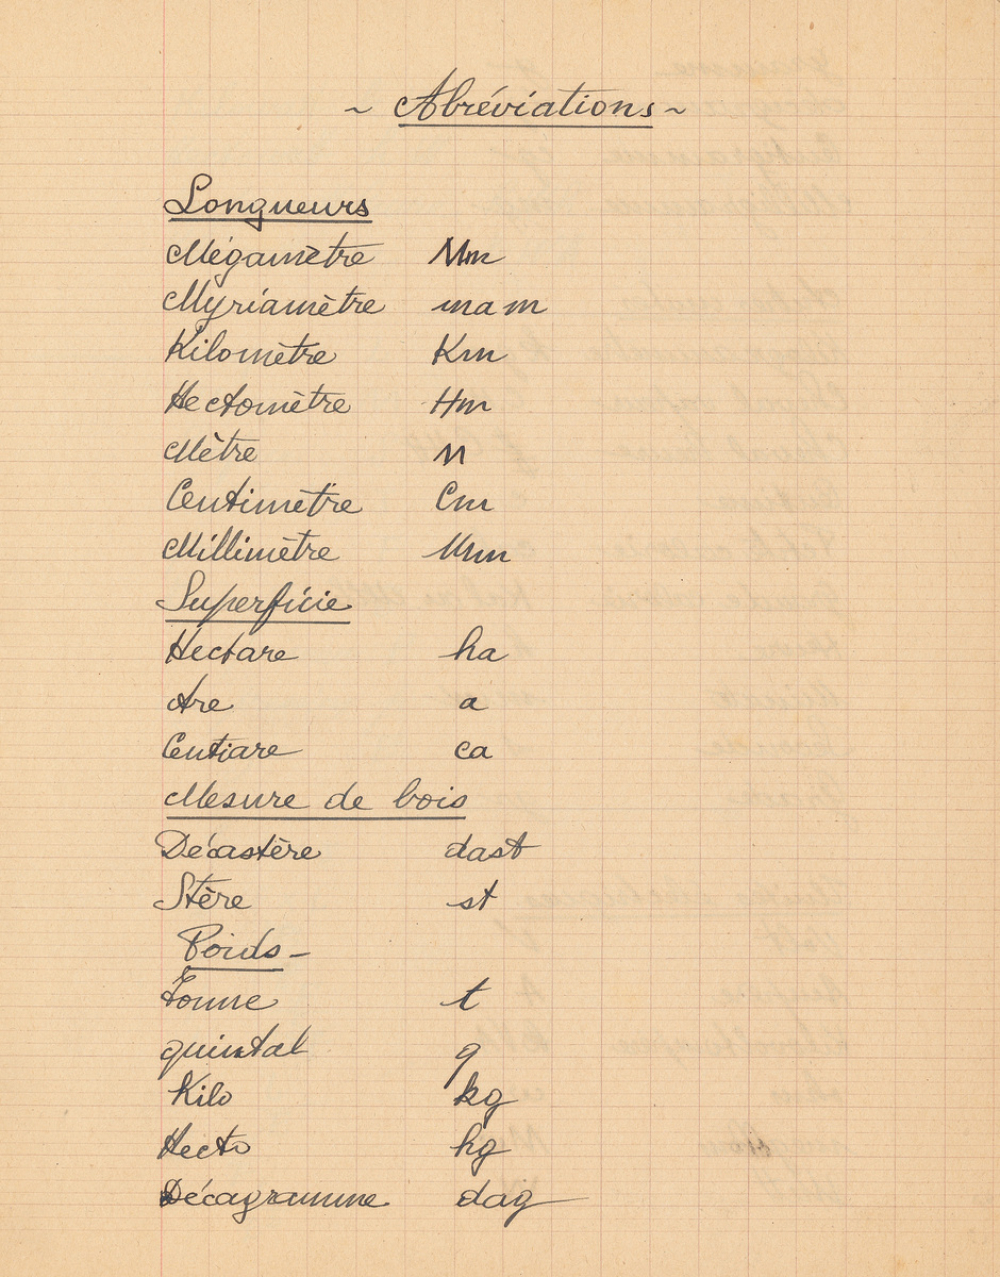 ~ Abréviations ~
Longueurs
Mégamètre Mm
Myriamètre mam
Kilomètre Km
Hectomètre Hm
Mètre M
Centimètre Cm
Millimètre Mm
Superficie
Hectare ha
Are a
Centiare ca
Mesure de bois
Décastère dast
Stère st
Poids -
Tonne t
quintal q
Kilo kg
Hecto hg
Décagramme dag